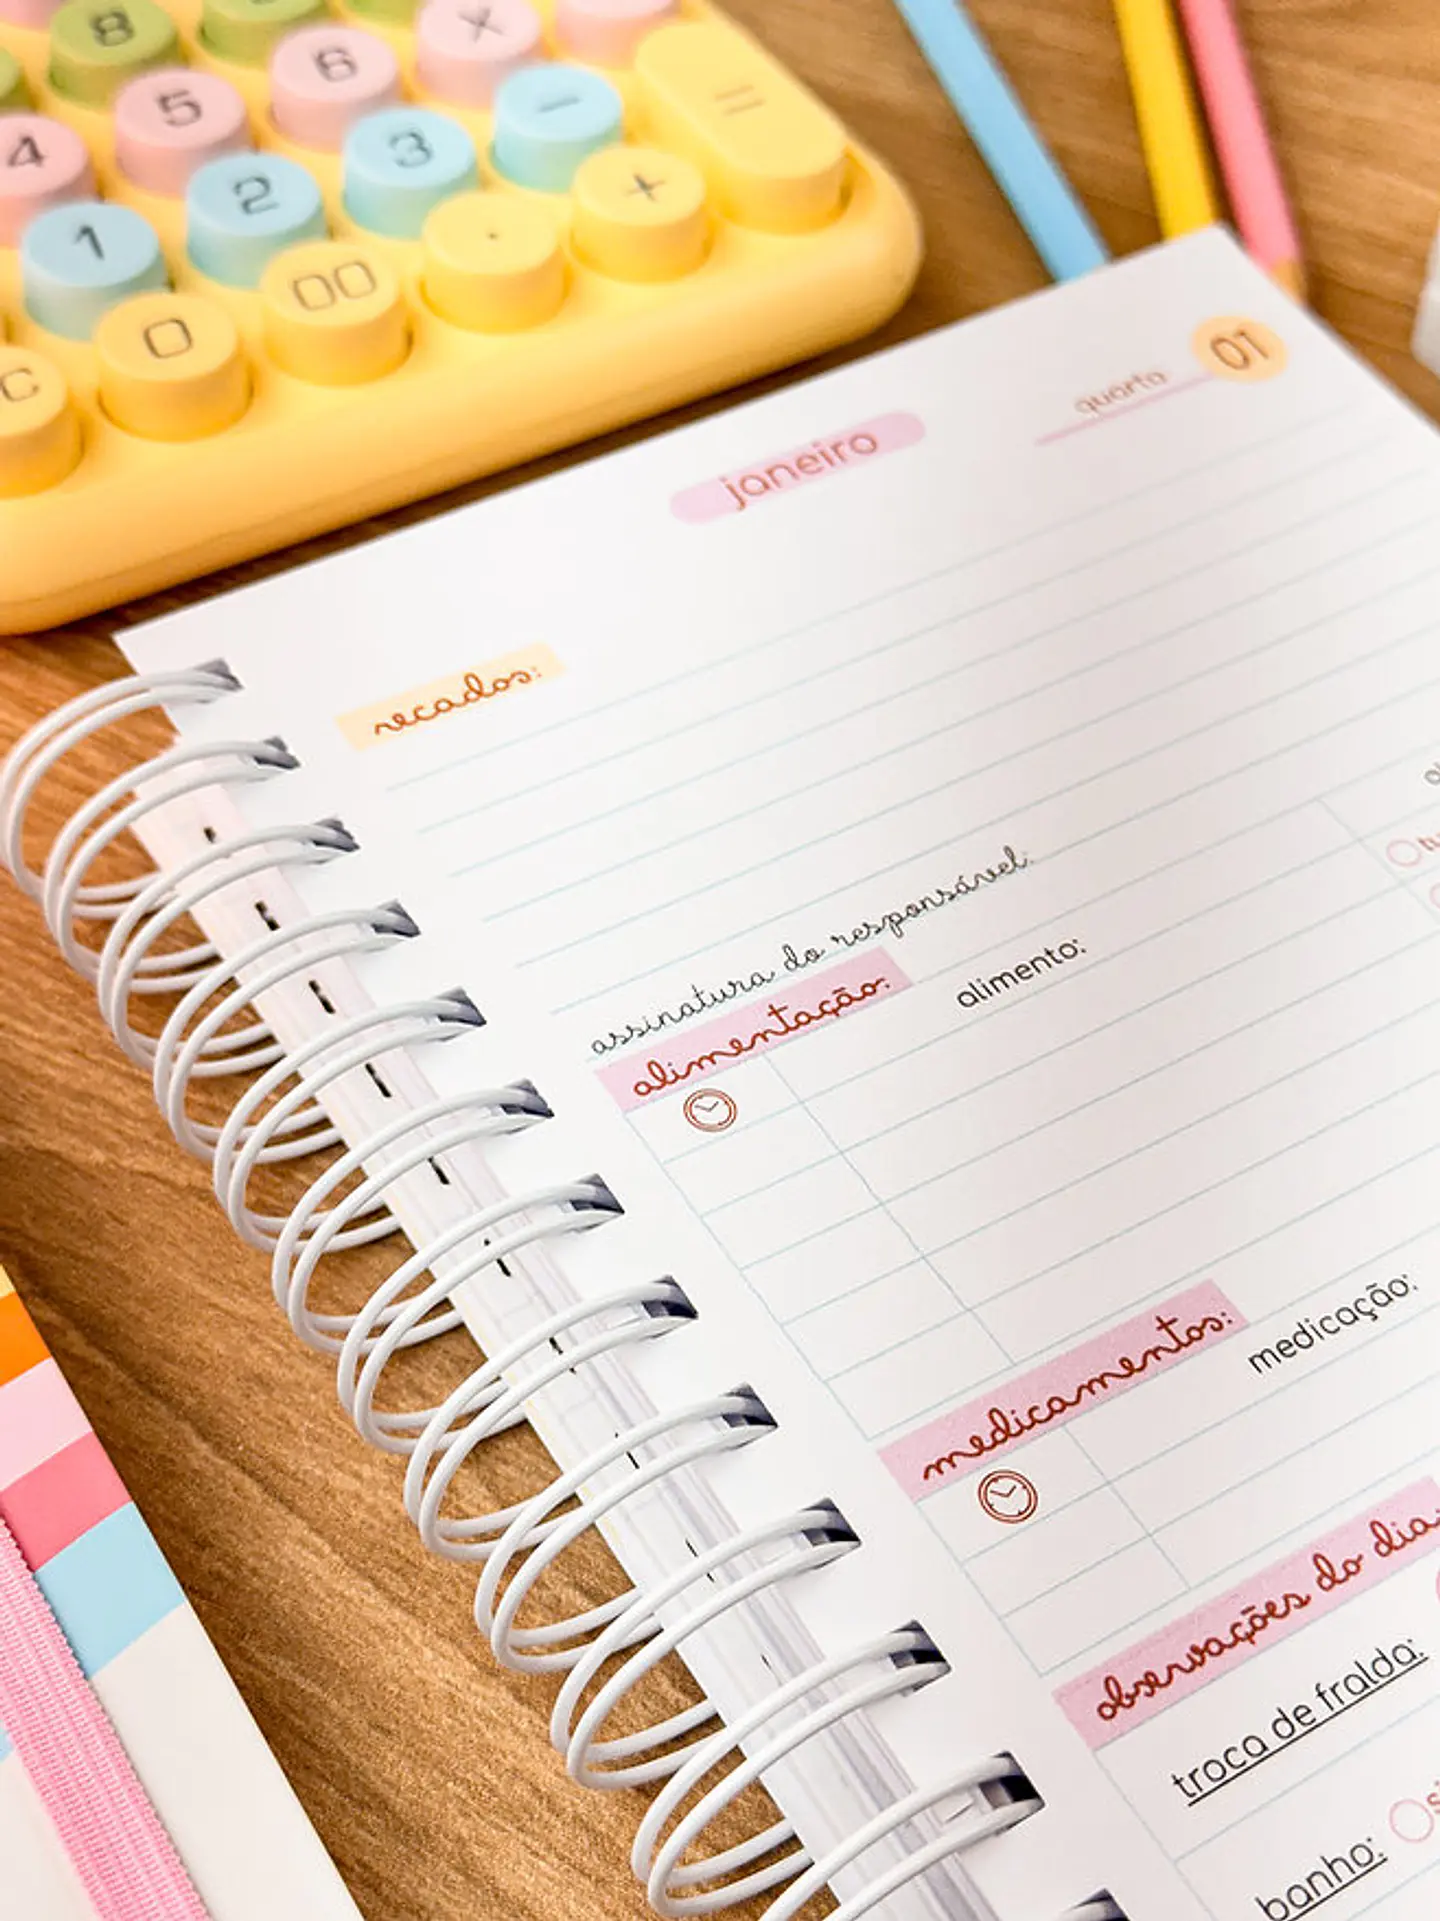 8
4 5 6 ×
1 2 3 − =
C 0 00 . +
quarta 01
janeiro
recados:
assinatura do responsável:
alimentação:
alimento:
medicamentos:
medicação:
observações do dia:
troca de fralda:
banho: